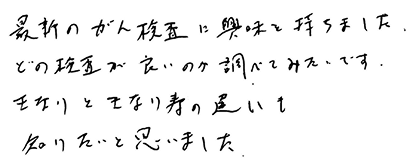 最新のがん検査に興味を持ちました.
どの検査が良いのか調べてみたいです.
となりとなり寿の違いも
知りたいと思いました